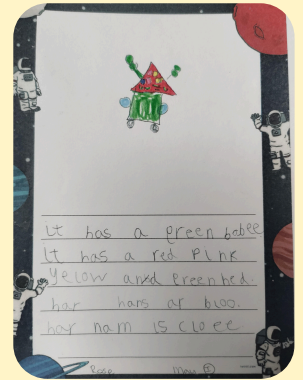 It has a green bobee
It has a red Pink
Yelow and green hed.
har hans ar bloo.
har nam is cloee
Rose